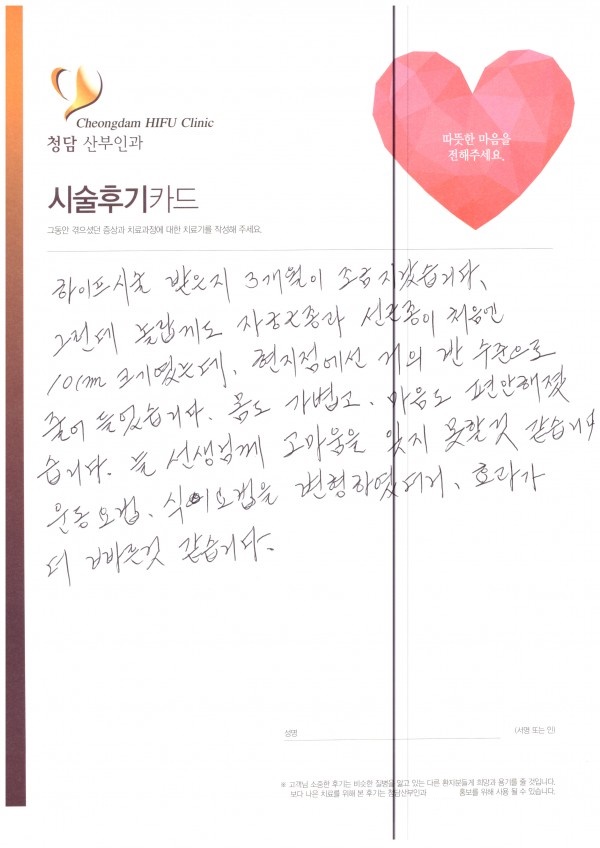 Cheongdam HIFU Clinic
청담 산부인과
따뜻한 마음을
전해주세요.
시술후기카드
그동안 겪으셨던 증상과 치료과정에 대한 치료기를 작성해 주세요.
하이프시술 받은지 3개월이 조금 지났습니다.
그런데 놀랍게도 자궁근종과 선근종이 처음엔
10cm 크기였는데, 현지점에선 거의 반 수준으로
줄어 들었습니다. 몸도 가볍고, 마음도 편안해졌
습니다. 늘 선생님께 고마움을 잊지 못할것 같습니다
운동요법, 식이요법을 변형하였더니, 효과가
더 빠른것 같습니다.
성명 (서명 또는 인)
※ 고객님 소중한 후기는 비슷한 질병을 앓고 있는 다른 환자분들게 희망과 용기를 줄 것입니다.
보다 나은 치료를 위해 본 후기는 청담산부인과 홍보를 위해 사용 될 수 있습니다.